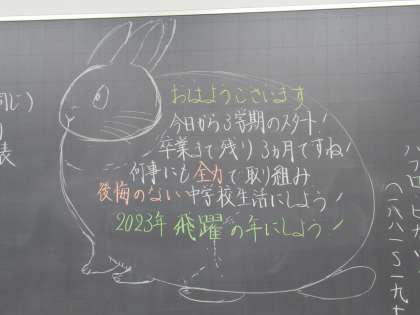 おはようございます
今日から3学期のスタート!
卒業まで残り3カ月ですね
何事にも全力で取り組み
後悔のない中等校生活にしよう!
2023年 飛躍の年にしよう!
同じ)
表
(一八八一〜一九七